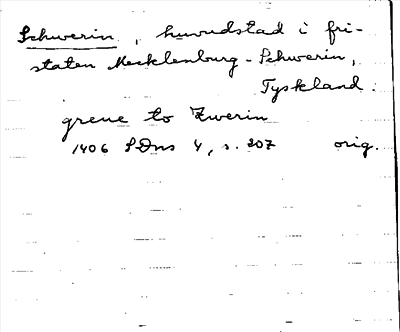 Schwerin, huvudstad i fri-
staten Mecklenburg-Schwerin,
Tyskland.
greue to Zwerin
1406 SDns 4, s. 207 orig.